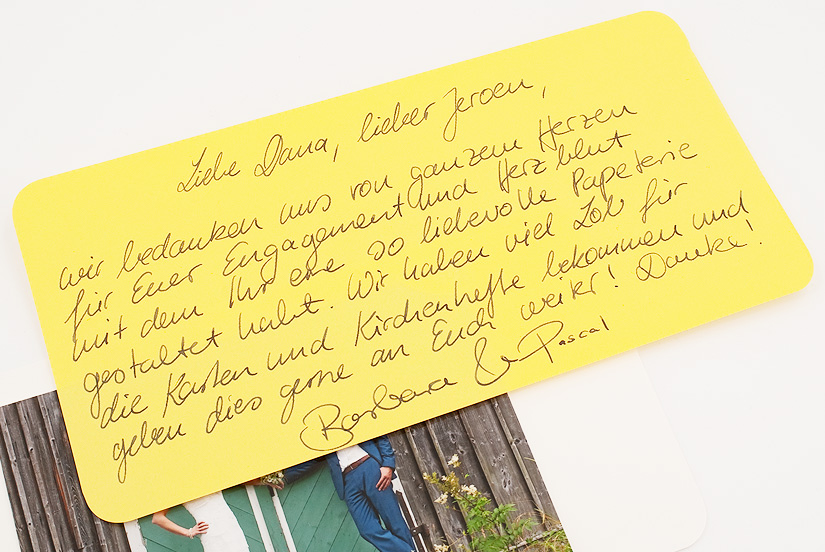 Liebe Dana, lieber Jeroen,
wir bedanken uns von ganzem Herzen
für Euer Engagement und Herzblut
mit dem Ihr eine so liebevolle Papeterie
gestaltet habt. Wir haben viel Lob für
die Karten und Kirchenhefte bekommen und
geben dies gerne an Euch weiter! Danke!
Barbara & Pascal